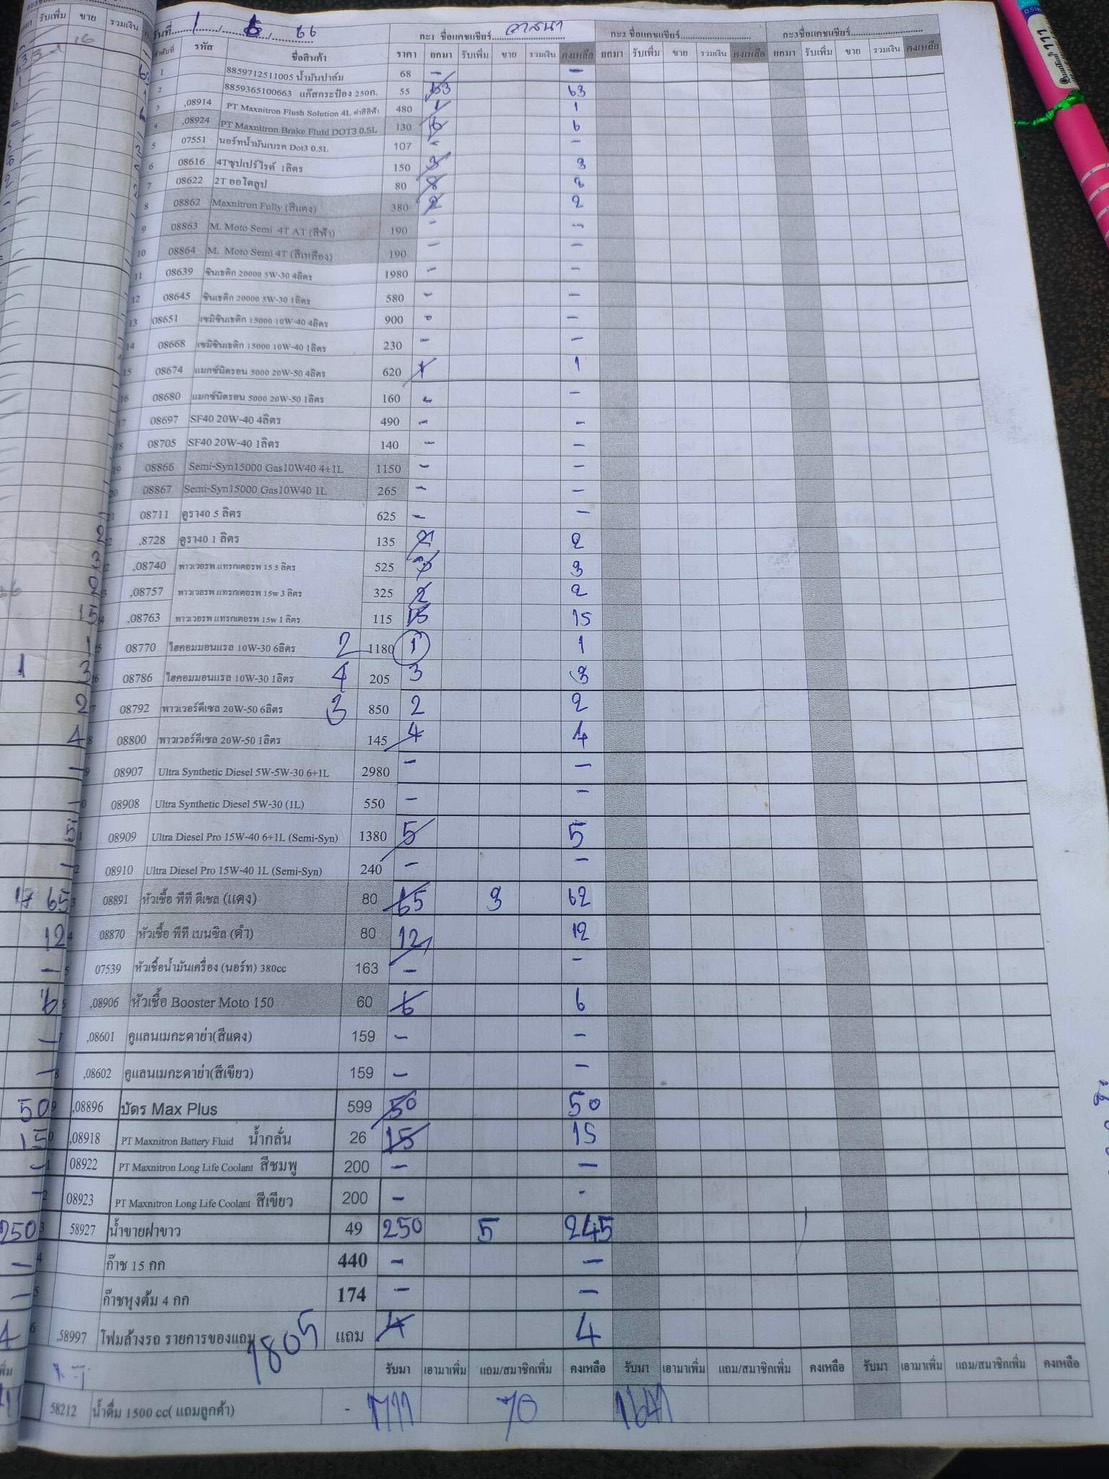 วันที่ 1 / 6 / 66 กะ1 ชื่อแคชเชียร์ วาสนา กะ2 ชื่อแคชเชียร์ กะ3 ชื่อแคชเชียร์
ลำดับที่ รหัส ชื่อสินค้า ราคา ยกมา รับเพิ่ม ขาย รวมเงิน คงเหลือ ยกมา รับเพิ่ม ขาย รวมเงิน คงเหลือ ยกมา รับเพิ่ม ขาย รวมเงิน คงเหลือ
1 8859712511005 น้ำมันปาล์ม 68 - -
2 8859365100663 แก๊สกระป๋อง 250ก. 55 63 63
3 ,08914 PT Maxnitron Flush Solution 4L 480 1 1
4 ,08924 PT Maxnitron Brake Fluid DOT3 0.5L 130 6 6
5 07551 นอร์ทน้ำมันเบรค Dot3 0.5L 107 - -
6 08616 4Tซุปเปร์ไรด์ 1ลิตร 150 3 3
7 08622 2T ออโตลูป 80 8 8
8 08862 Maxnitron Fully (สีแดง) 380 2 2
9 08863 M. Moto Semi 4T AT (สีฟ้า) 190 - -
10 08864 M. Moto Semi 4T (สีเหลือง) 190 - -
11 08639 ซินเธติก 20000 5W-30 4ลิตร 1980 - -
12 08645 ซินเธติก 20000 5W-30 1ลิตร 580 - -
13 08651 เซมิซินเธติก 15000 10W-40 4ลิตร 900 - -
14 08668 เซมิซินเธติก 15000 10W-40 1ลิตร 230 - -
15 08674 แมกซ์นิตรอน 5000 20W-50 4ลิตร 620 1 1
16 08680 แมกซ์นิตรอน 5000 20W-50 1ลิตร 160 - -
17 08697 SF40 20W-40 4ลิตร 490 - -
18 08705 SF40 20W-40 1ลิตร 140 - -
19 08866 Semi-Syn15000 Gas10W40 4+1L 1150 - -
20 08867 Semi-Syn15000 Gas10W40 1L 265 - -
08711 ดูรา40 5 ลิตร 625 - -
,8728 ดูรา40 1 ลิตร 135 2 2
,08740 พาวเวอรพ แทรกเตอรพ 15 5 ลิตร 525 3 3
,08757 พาวเวอรพ แทรกเตอรพ 15w 3 ลิตร 325 2 2
,08763 พาวเวอรพ แทรกเตอรพ 15w 1 ลิตร 115 15 15
08770 ไฮคอมมอนแรล 10W-30 6ลิตร 2 1180 1 1
08786 ไฮคอมมอนแรล 10W-30 1ลิตร 4 205 3 3
08792 พาวเวอร์ดีเซล 20W-50 6ลิตร 3 850 2 2
08800 พาวเวอร์ดีเซล 20W-50 1ลิตร 145 4 4
08907 Ultra Synthetic Diesel 5W-5W-30 6+1L 2980 - -
08908 Ultra Synthetic Diesel 5W-30 (1L) 550 - -
08909 Ultra Diesel Pro 15W-40 6+1L (Semi-Syn) 1380 5 5
08910 Ultra Diesel Pro 15W-40 1L (Semi-Syn) 240 - -
08891 หัวเชื้อ พีที ดีเซล (แดง) 80 65 3 62
08870 หัวเชื้อ พีที เบนซิล (ดำ) 80 12 12
07539 หัวเชื้อน้ำมันเครื่อง (นอร์ท) 380cc 163 - -
,08906 หัวเชื้อ Booster Moto 150 60 6 6
,08601 คูแลนเมกะดาย่า(สีแดง) 159 - -
,08602 คูแลนเมกะดาย่า(สีเขียว) 159 - -
,08896 บัตร Max Plus 599 50 50
,08918 PT Maxnitron Battery Fluid น้ำกลั่น 26 15 15
08922 PT Maxnitron Long Life Coolant สีชมพู 200 - -
08923 PT Maxnitron Long Life Coolant สีเขียว 200 - -
58927 น้ำขายฝาขาว 49 250 5 245
ก๊าซ 15 กก 440 - -
ก๊าซหุงต้ม 4 กก 174 - -
,58997 โฟมล้างรถ รายการของแถม 1805 แถม 4 4
รับมา เอามาเพิ่ม แถม/สมาชิกเพิ่ม คงเหลือ รับมา เอามาเพิ่ม แถม/สมาชิกเพิ่ม คงเหลือ รับมา เอามาเพิ่ม แถม/สมาชิกเพิ่ม คงเหลือ
58212 น้ำดื่ม 1500 cc( แถมลูกค้า) - 1711 70 1641